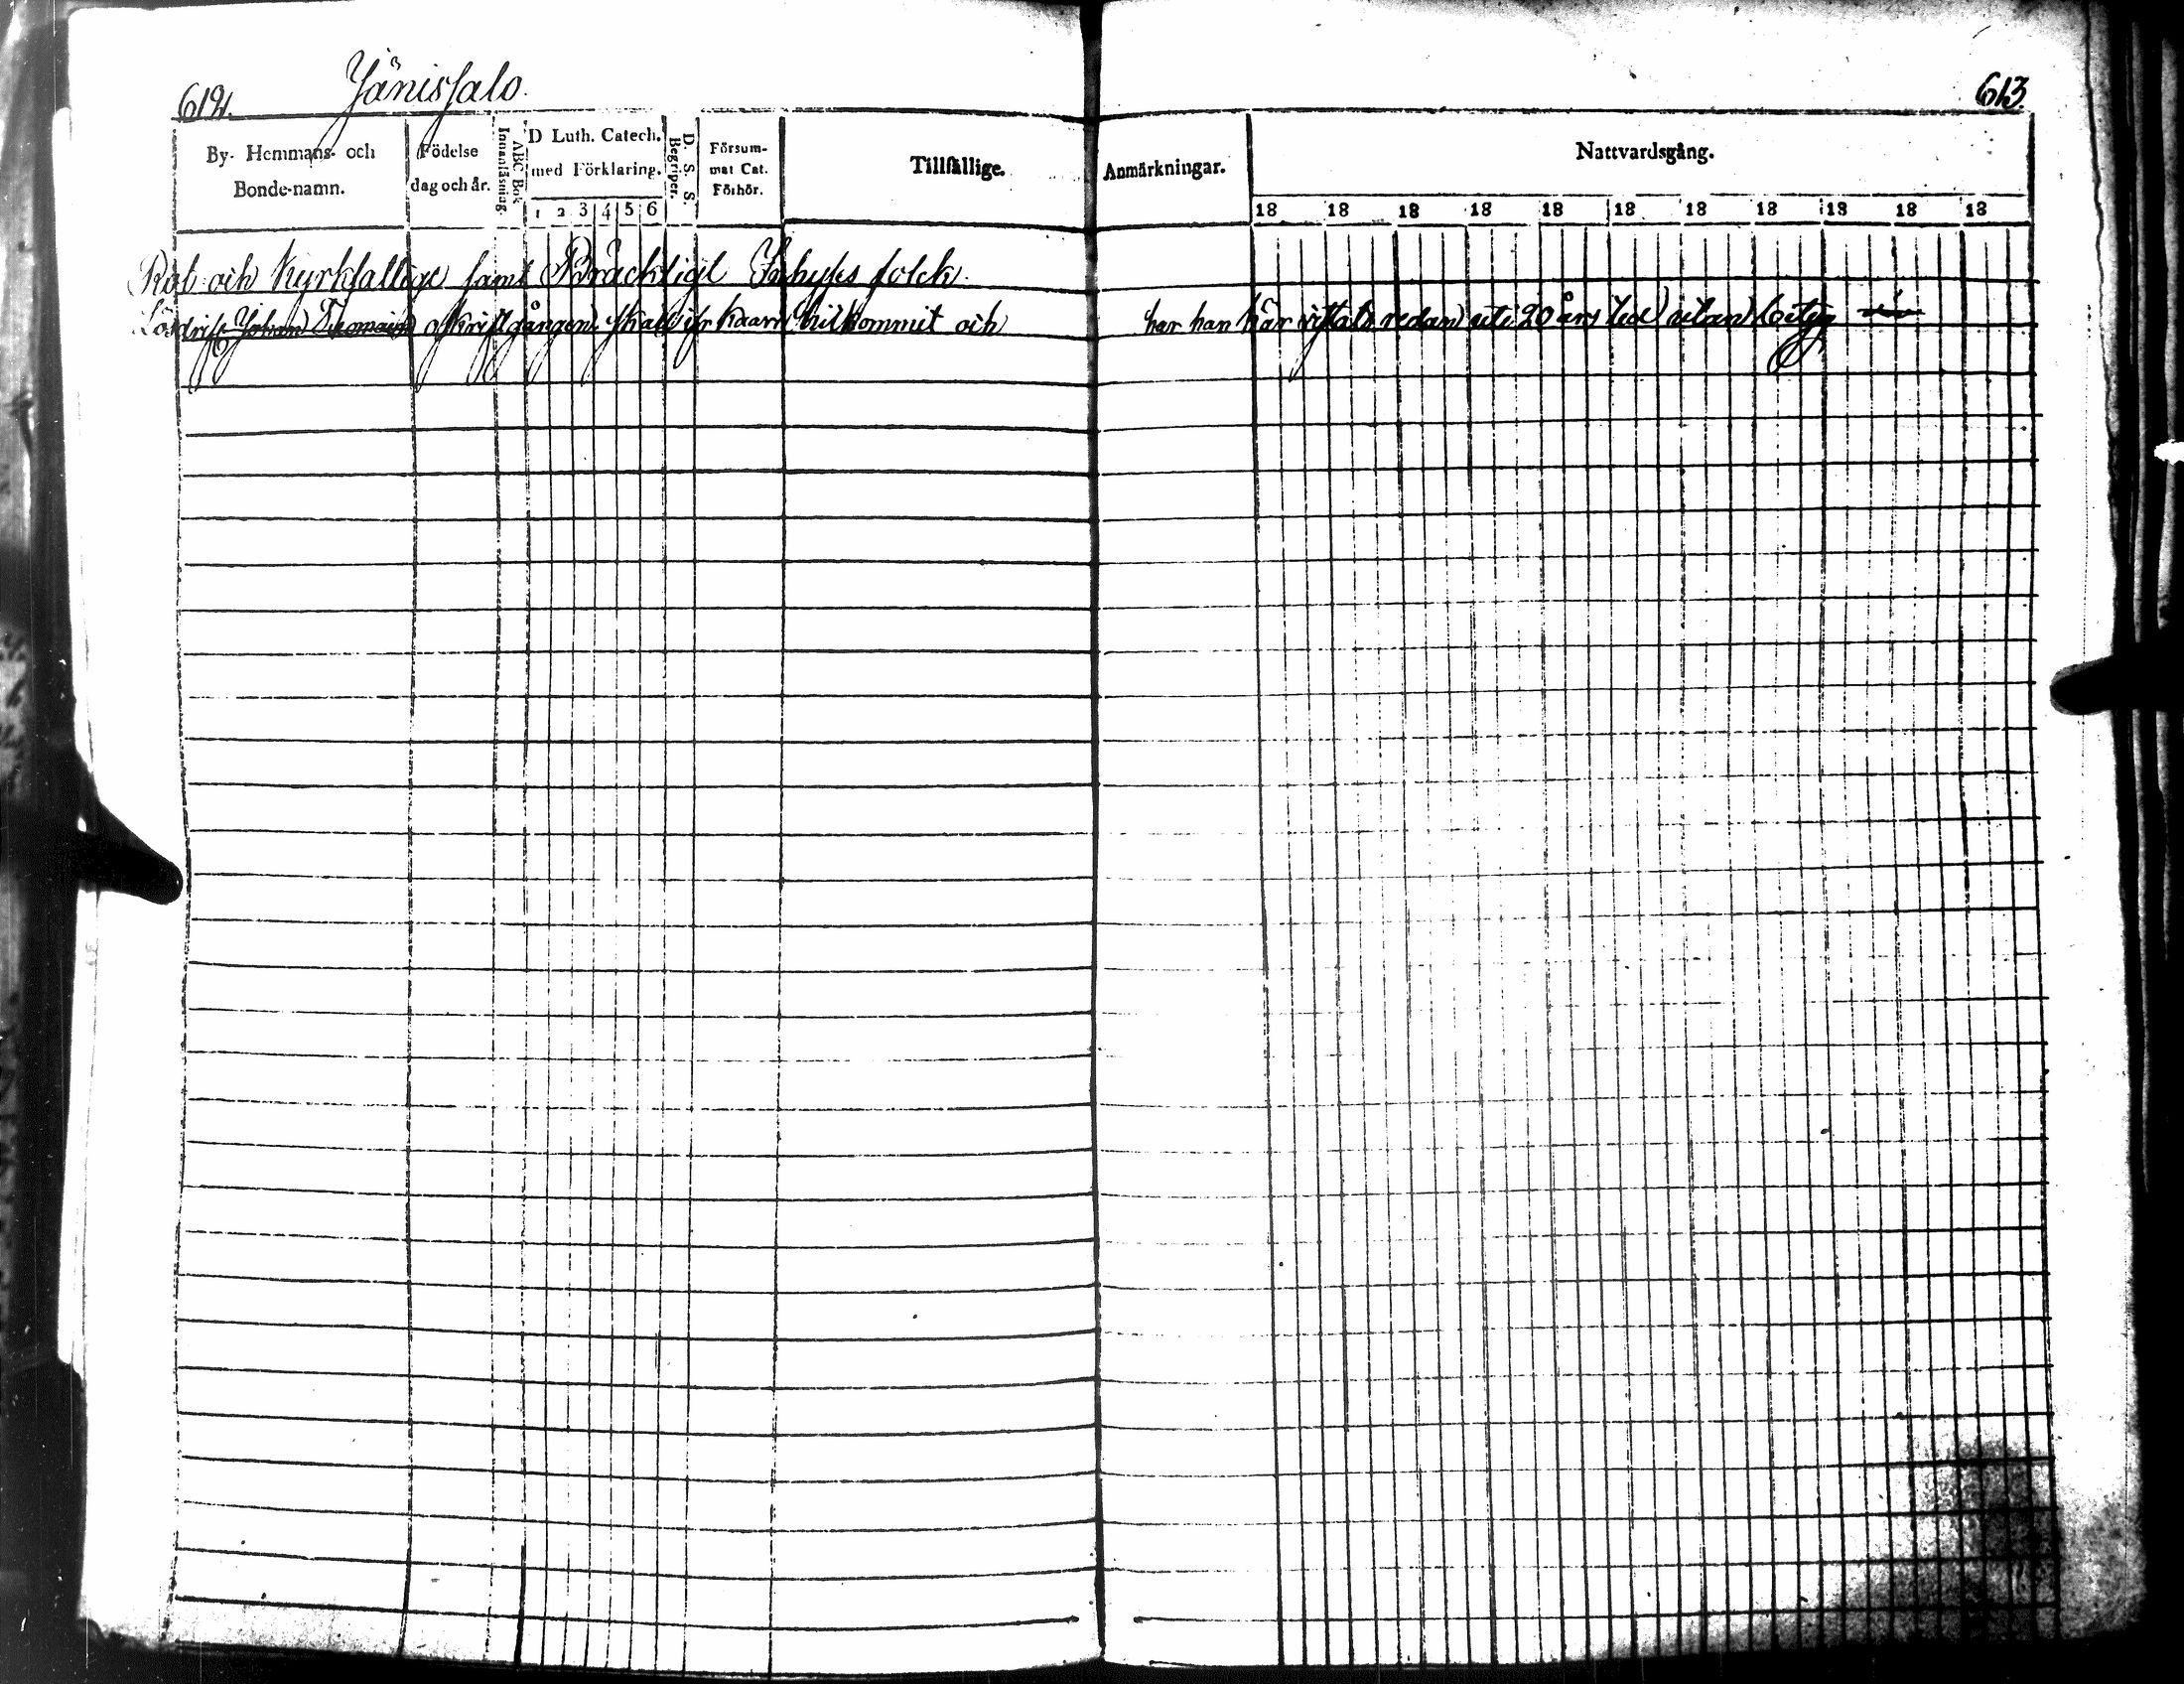 612. Jänissalo. 613.
By- Hemmans- och Bonde-namn.
Födelse dag och år.
Innanläsning.
ABC Bok
D Luth. Catech. med Förklaring.
1 2 3 4 5 6
D. S. S. Begriper.
Försum- mat Cat. Förhör.
Tillfällige.
Anmärkningar.
Nattvardsgång.
18 18 18 18 18 18 18 18 18 18 18
Rot- och Kyrkfattige samt Bräckligt Inhyses folck.
Lösdrif. Johan afkriftgången skall ifr hit kommit och har han här vistats redan uti 20 års ted utan betyg